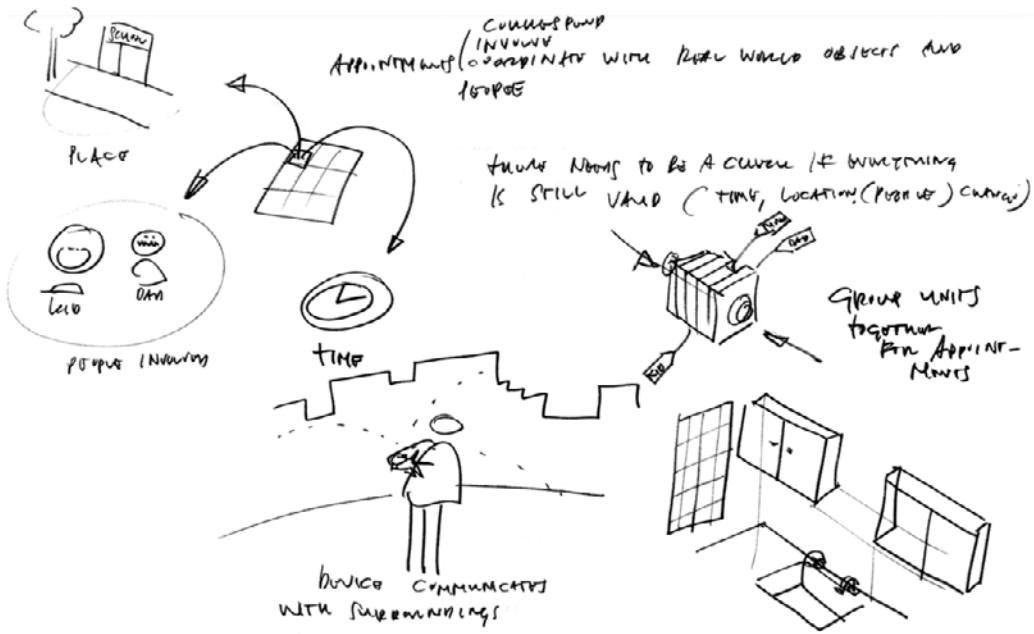 SCHOOL
CORRESPOND
INVOLVE
APPOINTMENTS COORDINATE WITH REAL WORLD OBJECTS AND
PEOPLE
PLACE
THERE NEEDS TO BE A CHECK IF EVERYTHING
IS STILL VALID (TIME, LOCATION, (PEOPLE) CHANGE)
DAD
KID
DAD
PEOPLE INVOLVED
TIME
KID
GROUP UNITS
TOGETHER
FOR APPOINT-
MENTS
DEVICE COMMUNICATES
WITH SURROUNDINGS